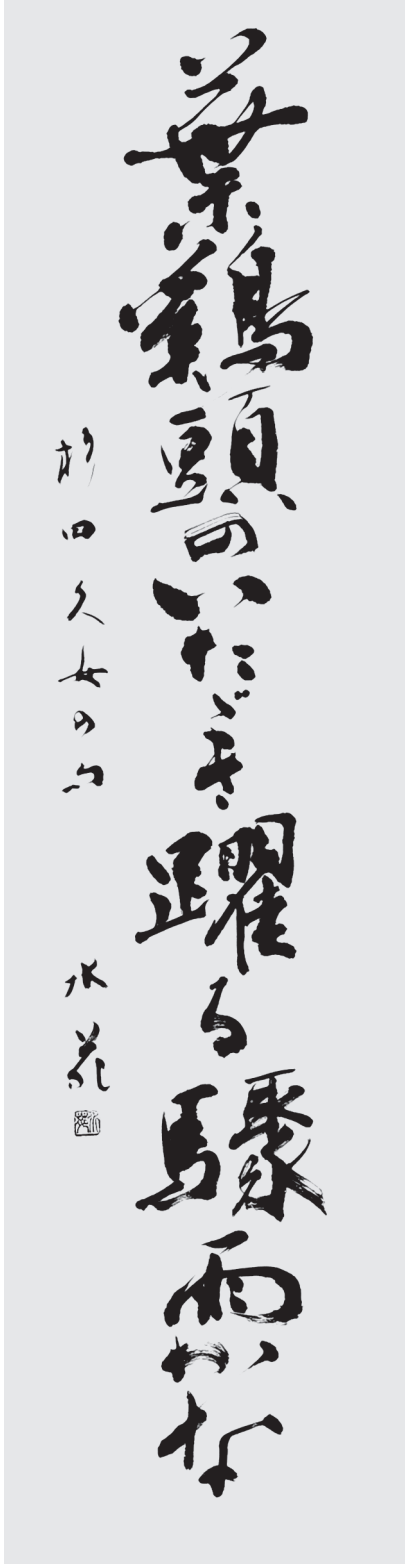 葉鶏頭のいたゞき躍る驟雨かな
杉田久女の句
水苑